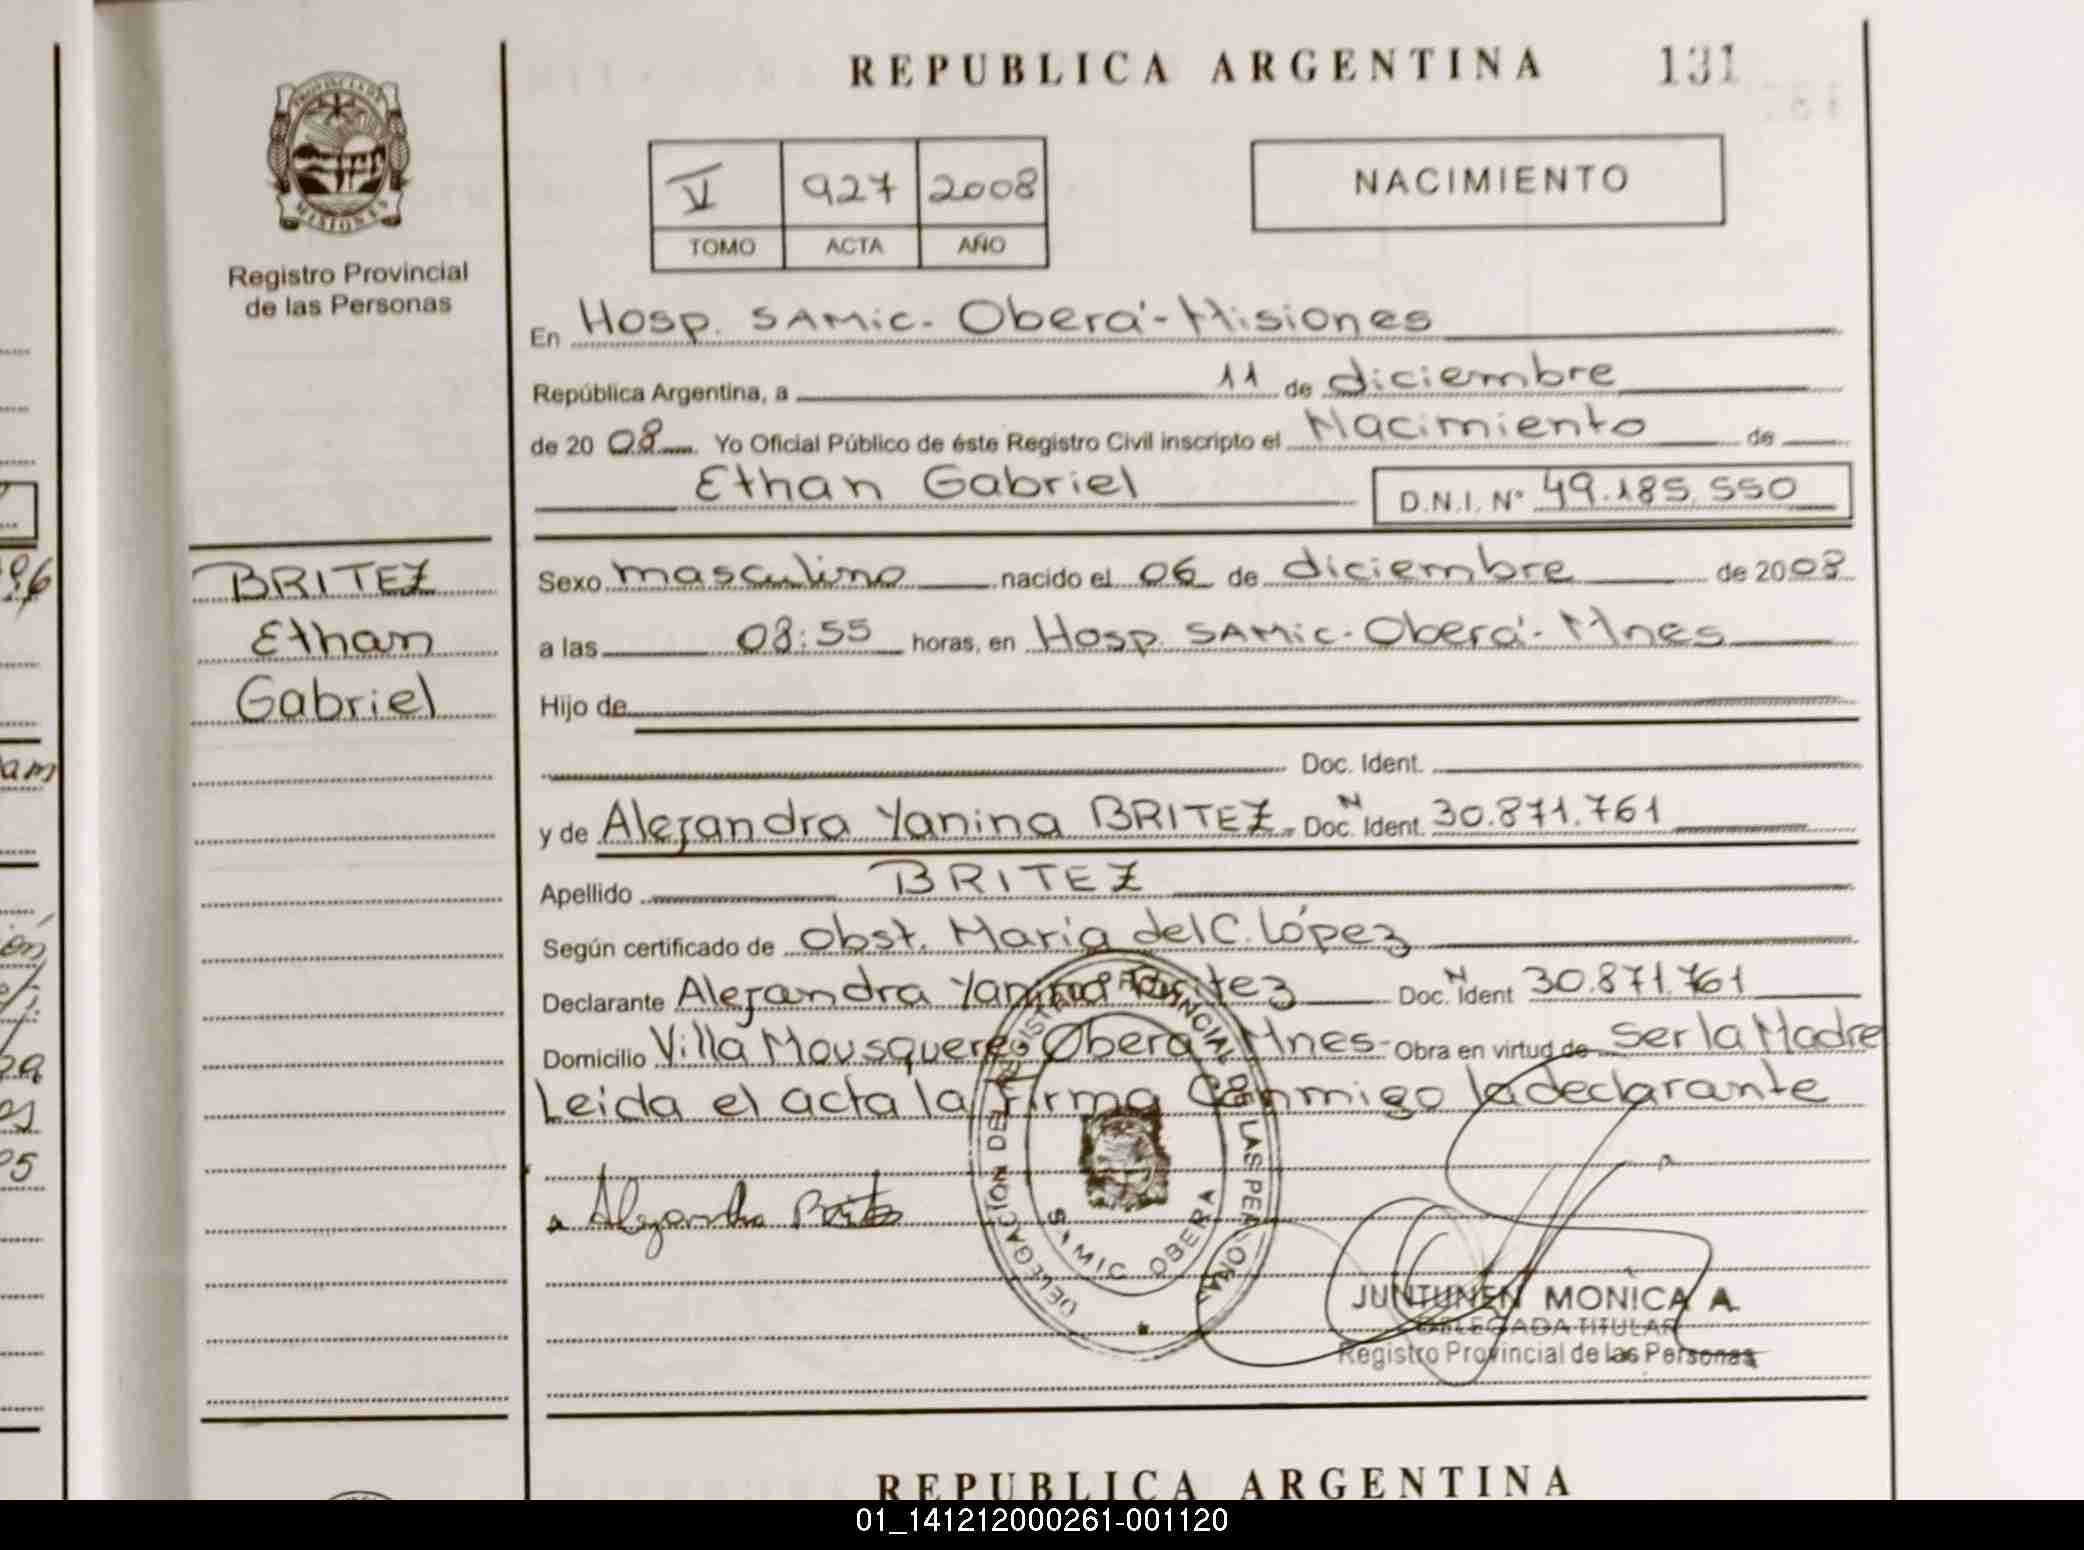 REPUBLICA ARGENTINA 131
PROVINCIA DE
MISIONES
Registro Provincial
de las Personas
V 927 2008
TOMO ACTA AÑO
NACIMIENTO
En Hosp. SAMIC - Oberá - Misiones
República Argentina, a 11 de diciembre
de 20 08. Yo Oficial Público de éste Registro Civil inscripto el Nacimiento de
Ethan Gabriel D.N.I. Nº 49.185.550
BRITEZ
Ethan
Gabriel
Sexo masculino nacido el 06 de diciembre de 2008
a las 08:55 horas, en Hosp. SAMIC - Oberá - Mnes
Hijo de
Doc. Ident.
y de Alejandra Yanina BRITEZ Doc. N Ident. 30.871.761
Apellido BRITEZ
Según certificado de Obst. María del C. López
Declarante Alejandra Yanina Britez Doc. N Ident 30.871.761
Domicilio Villa Mousquere Oberá Mnes - Obra en virtud de Ser la Madre
Leida el acta la firma Conmigo la declarante
Alejandra Britez
DELEGACION DEL REGISTRO PROVINCIAL DE LAS PERSONAS
SAMIC OBERA
JUNTUNEN MONICA A.
DELEGADA TITULAR
Registro Provincial de las Personas
REPUBLICA ARGENTINA
01_141212000261-001120